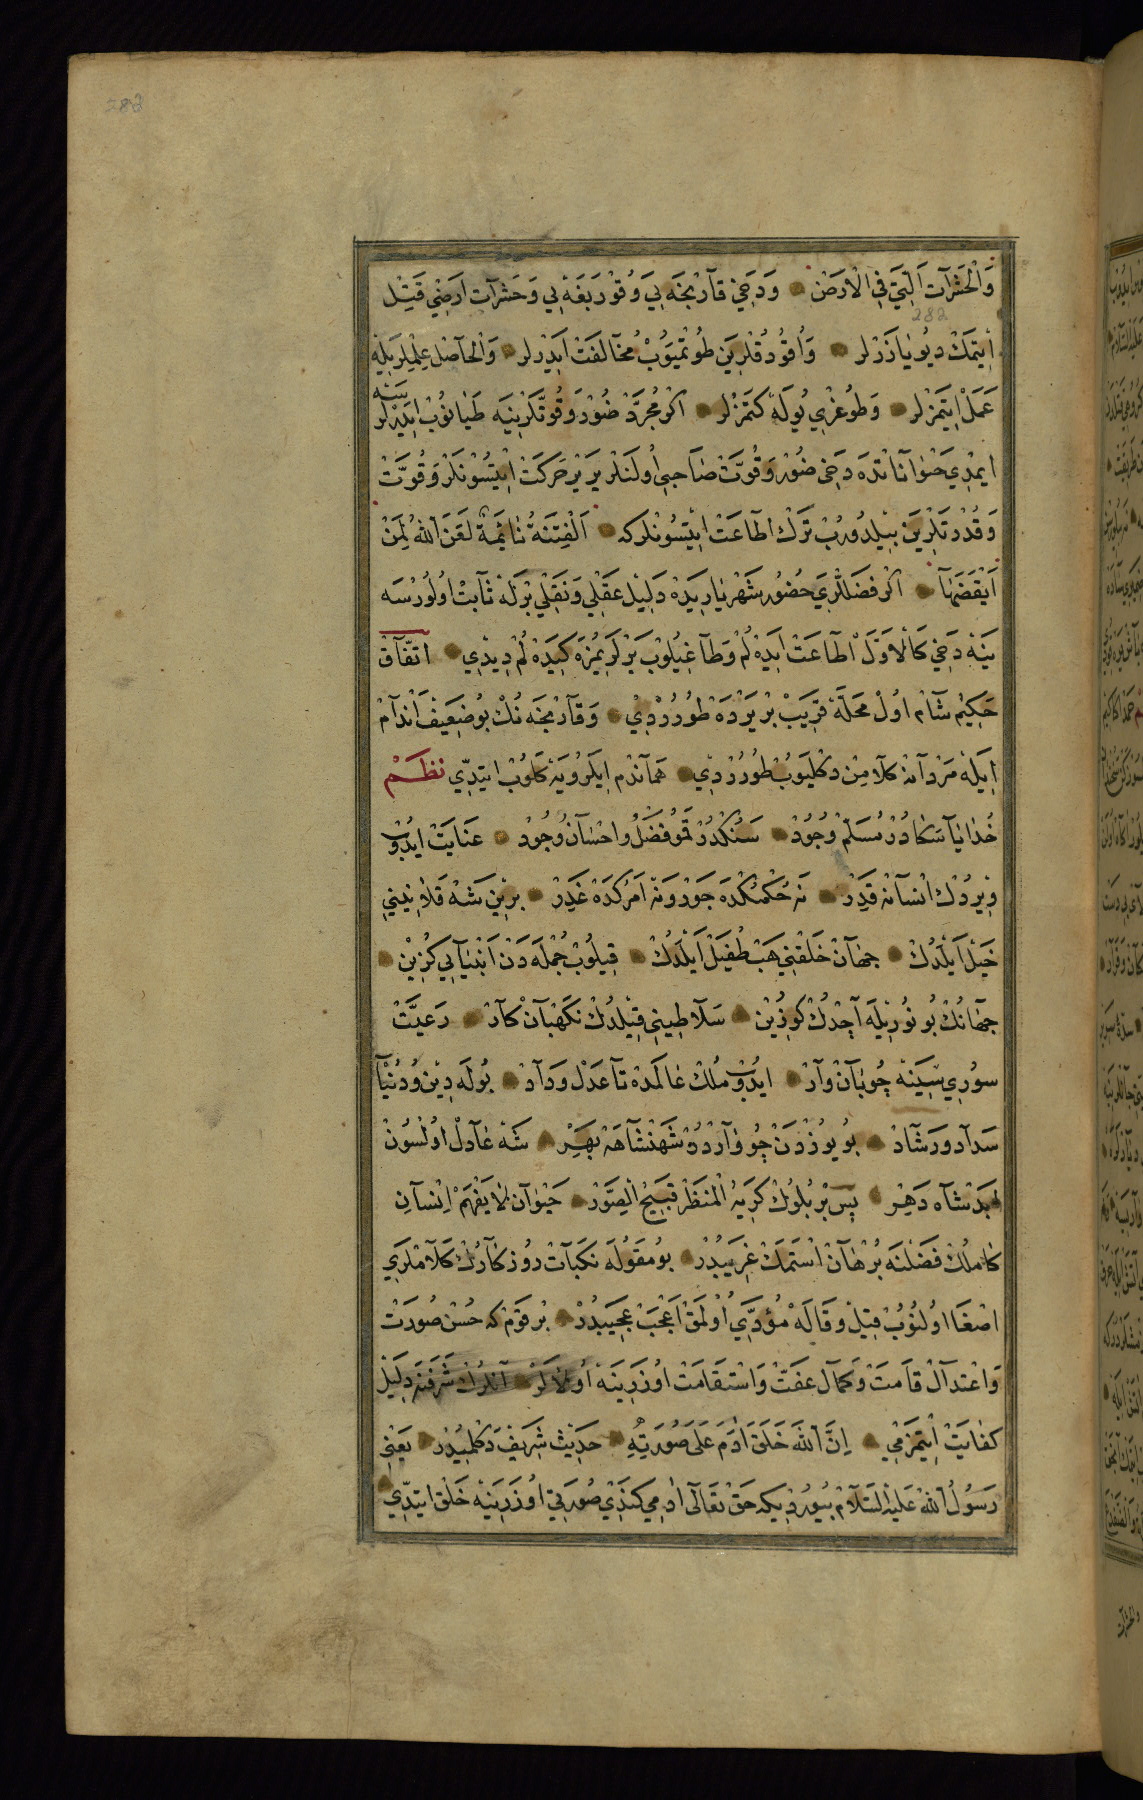 282
وَالْحَشَرَآتَ اَلَّتِيَ فِي الْاَرَضْ وَدَخِيْ قَآرِنْجَه يِيَ وَ قُوْرَبَغَه يِي وَحَشَرَآت اَرَضِيْ قَتِلْ
282
اِيتِمَكْ دِيُو يَازَرْلَر وَ اُوقُودُقْلَرِيَن طُوتْمَيُوبْ مُخَالَفَتْ اَيَدَرْلَر وَالْحَاصِلْ عِلِمْلَرِيَلَه
عَمَلْ اِيتَمَزْلَر وَطُوغْرِي يُولَه كِتْمَزْلَر اكر مُجَرَّدْ ضُوْرَ وَ قُوَّتْلَرِيْنَه طَيَانُوبْ ايدرلر
سَه
ايمْدِي حَيْوَانَاتْدَه دَخِى ضُوْرَ وَ قُوَّتْ صَاحِبِي اُولَنْلَرْ يَر يَرْ حَرَكَتْ اِيْتْسُوْنْلَرْ وَ قُوَّتْ
وَ قُدْرَتْلَرِيْنَ بِيلْدُورُبْ تَرْكِ اطَاعَتْ اِيْتْسُونْلَركه اَلْفِتَنَةُ نَائِمَةٌ لَعَنَ اللهُ لِمَنْ
اَيْقَضَهَا اكر فَضَلْلَرِي حُضُورِ شَهْرِيَارِيدَه دَلِيْلِ عَقْلِي وَ نَقْلِيْ بِرْلَه ثَابِتْ اُولُورْسَه
يَنَه دَخِي كَالْاَوَّلْ اطَاعَتْ اَيْدَه لُمْ وَطَاغِيلُوبْ يَرْلَرِيمُزَه كِيدَه لُمْ دِيدِي اتّفَاقْ
حَكِيْم شَامْ اولْ مَحَلَّه قَرِيبْ بْر يَرْدَه طُورُرْدِيْ وَ قَارِنْجَه نُكْ بُو ضَعِيفْ اَنْدَامْ
اِيلَه مَرْدَانَه كَلَامِنْ دِكْلَيُوبْ طُورُرْدِي هَمَانْدَمْ اِيلَرُو يَه كَلُوبْ ايتِدِّي نَظَمْ
خُدَايَا سَكَادُرْ مُسَلَّمْ وُجُودْ سَنُكْدُرْ قَمُو فَضْل وَ احْسَانُ وُجُودْ عِنَايَتْ ايدُوبْ
وِيرْدُكْ انْسَانَه قَدِرْ نَه حُكْمِكْدَه جَوَرْ وَ نَه اَمْرِكَدَه غَدِرْ بِرِينْ شَهْ قَلَانِينِي
خَيْلْ اَيْلَدُكْ جِهَانْ خَلْقِنِي هَبْ طُفَيْلْ اَيْلَدُكْ قِيلُوبْ جُمْلَه دَنْ اَنْبِيَايِي كُزِيْنْ
جِهَانُكْ بُو نُورِيْلَه آچْدُكْ كُوزِيْنْ سَلَاطِينِي قِيْلْدُكْ نِكَهْبَانْ كَارْ رَعِيَّتْ
سُورِي سِيَنه چُوبَانْ وَارْ ايدُوبْ مُلْكِ عَالَمْدَه تَا عَدْل وَدَادْ بُولَه دِيْن وَ دُنْيَا
سَدَاد وَ رَشَادْ بُو يُوزْدَنْ چُو وَارْدُرْ شَهَنْشَاهَه بَهِرْ شَهِ عَادِلْ اُولْسُونْ
شَاه دَهِرْ پَسْ بْر بُلُوكْ كَرِيْهُ الْمَنْظَرْ قَبِيْحُ الْصِوَرْ حَيْوَانِ لَا يَفْهَمْ اِنْسَانِ
كَامِلُكْ فَضْلِنَه بُرْهَانْ اسْتَمَكْ غَرِيبْدُرْ بُو مَقُولَه نَكَبَاتِ رُوزْكَارُكْ كَلَامْلَرِي
اصْغَا اُولُنُوبْ قِيْل وَ قَالَه مُؤَدِّي اُولْمَقْ اَعْجَبْ عَجِيبْدُرْ بْر قَوْمْ كه حُسْنِ صُورَتْ
وَ اعْتِدَالِ قَامَتْ وَ كَمَالِ عِفَّتْ وَاسْتِقَامَتْ اُوزَرِيْنَه اُولَالَرْ انْلَرُكْ شَرَفِنَه دَلِيْلْ
كِفَايَتْ اِيتْمَزْمِي اِنَّ اللهَ خَلَقَ اَدَمَ عَلَى صُورَتِهِ حَدِيْثِ شَرِيفْ دَكلمِيْدُر يَعْنِى
رَسُولُ اللهْ عَلَيْهِ السَّلَامْ بُيُورْدِيكه حَقْ تَعَالَى ادَمِي كَنْدِي صُورَتِي اُوزَرِيْنَه خَلْقْ ايتِدِّي